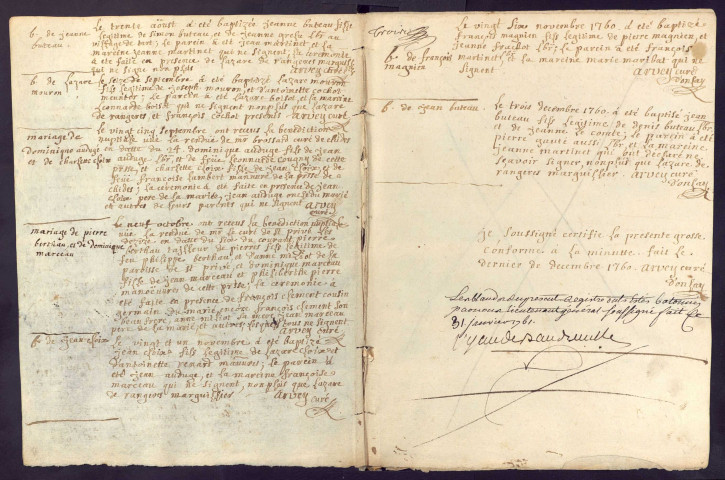 b. de jeanne
buteau.
le trente aoust a été baptizée jeanne buteau fille
legitime de simon buteau, et de jeanne
le parein a été jean martinet et la
mareine jeanne martinet qui ne signent, la ceremonie
a été faitte en presence de lazare de rangeres marguillier
qui ne signe non plus arvey curé
b. de lazare
mouron
le seize de septembre a été baptizé lazare mouron
fils legitime de joseph mouron, et d'antoinette cochot
le parein a été lazare boizot, et la mareine
leonarde boizot qui ne signent nonplus que lazare
de rangeres et françois cochot presents arvey curé
mariage de
dominique audugé
et de charlotte cloix
le vingt cinq septembre ont receus la benediction
nuptiale vue la remise de mr brossard curé de chides
en datte du 24 dominique audugé fils de jean
audugé lbr, et de feüe leonarde de cette
ptte, et charlotte cloix fille de jean cloix et de
feue françoise lambert manœuvre de la ptte de
chides; la ceremonie a été faitte en presence de jean
cloix pere de la mariée, jean audugé oncle du marié
et autres de leurs parents qui ne signent arvey
curé
mariage de pierre
berthau, et de dominique
marceau
le neuf octobre ont receus la benediction nuptiale
vue la remise de mr le curé de st privé
en datte du six du courant, pierre
berthau tailleur de pierres fils legitime de
feu philippe berthau, et d'anne milot de la
paroisse de st privé, et dominique marceau
fille de jean marceau et philiberte pierre
manoeuvres de cette ptte; la ceremonie a
été faitte en presence de françois clement cousin
germain du marié, encore françois clement son
beau frere, anne milot sa mere, jean marceau
pere de la mariée et autres, lesquels tous ne signent
arvey curé
b. de jean cloix
le vingt et un novembre a été baptizé
jean cloix fils legitime de lazare cloix, et
d'antoinette renart manœ; le parein a
été jean audugé, et la mareine françoise
marceau qui ne signent, nonplus que lazare
de rangeres marguillier arvey curé
troise
b. de françois
magnien
le vingt six novembre 1760 a été baptizé
françois magnien fils legitime de pierre magnien, et
jeanne frachot lbr; le parein a été françois
martinet, et la mareine marie martinet qui ne
signent arvey curé
d'onlay
b. de jean buteau.
le trois decembre 1760 a été baptisé jean
buteau fils legitime de denis buteau lbr
et de jeanne le comte; le parein a été
pierre aussi lbr, et la mareine
jeanne martinet qui ont declaré ne
sçavoir signer, nonplus que lazare de
rangeres marguillier arvey curé
d'onlay
je soussigné certifie la presente grosse
conforme a la minutte fait le
dernier de decembre 1760 arvey curé
d'onlay
le present registre
par nous lieutenant general soussigné fait ce
31 janvier 1761.